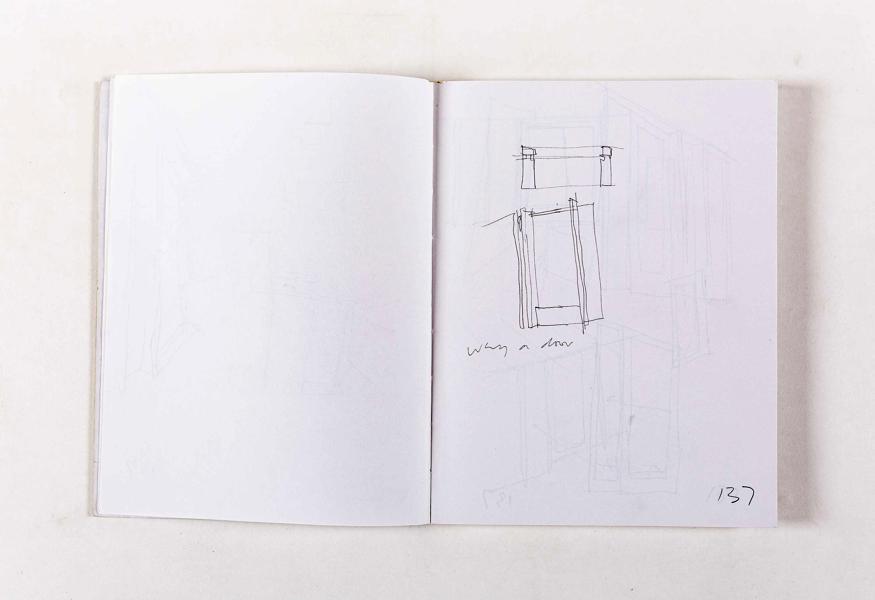 Why a door
137